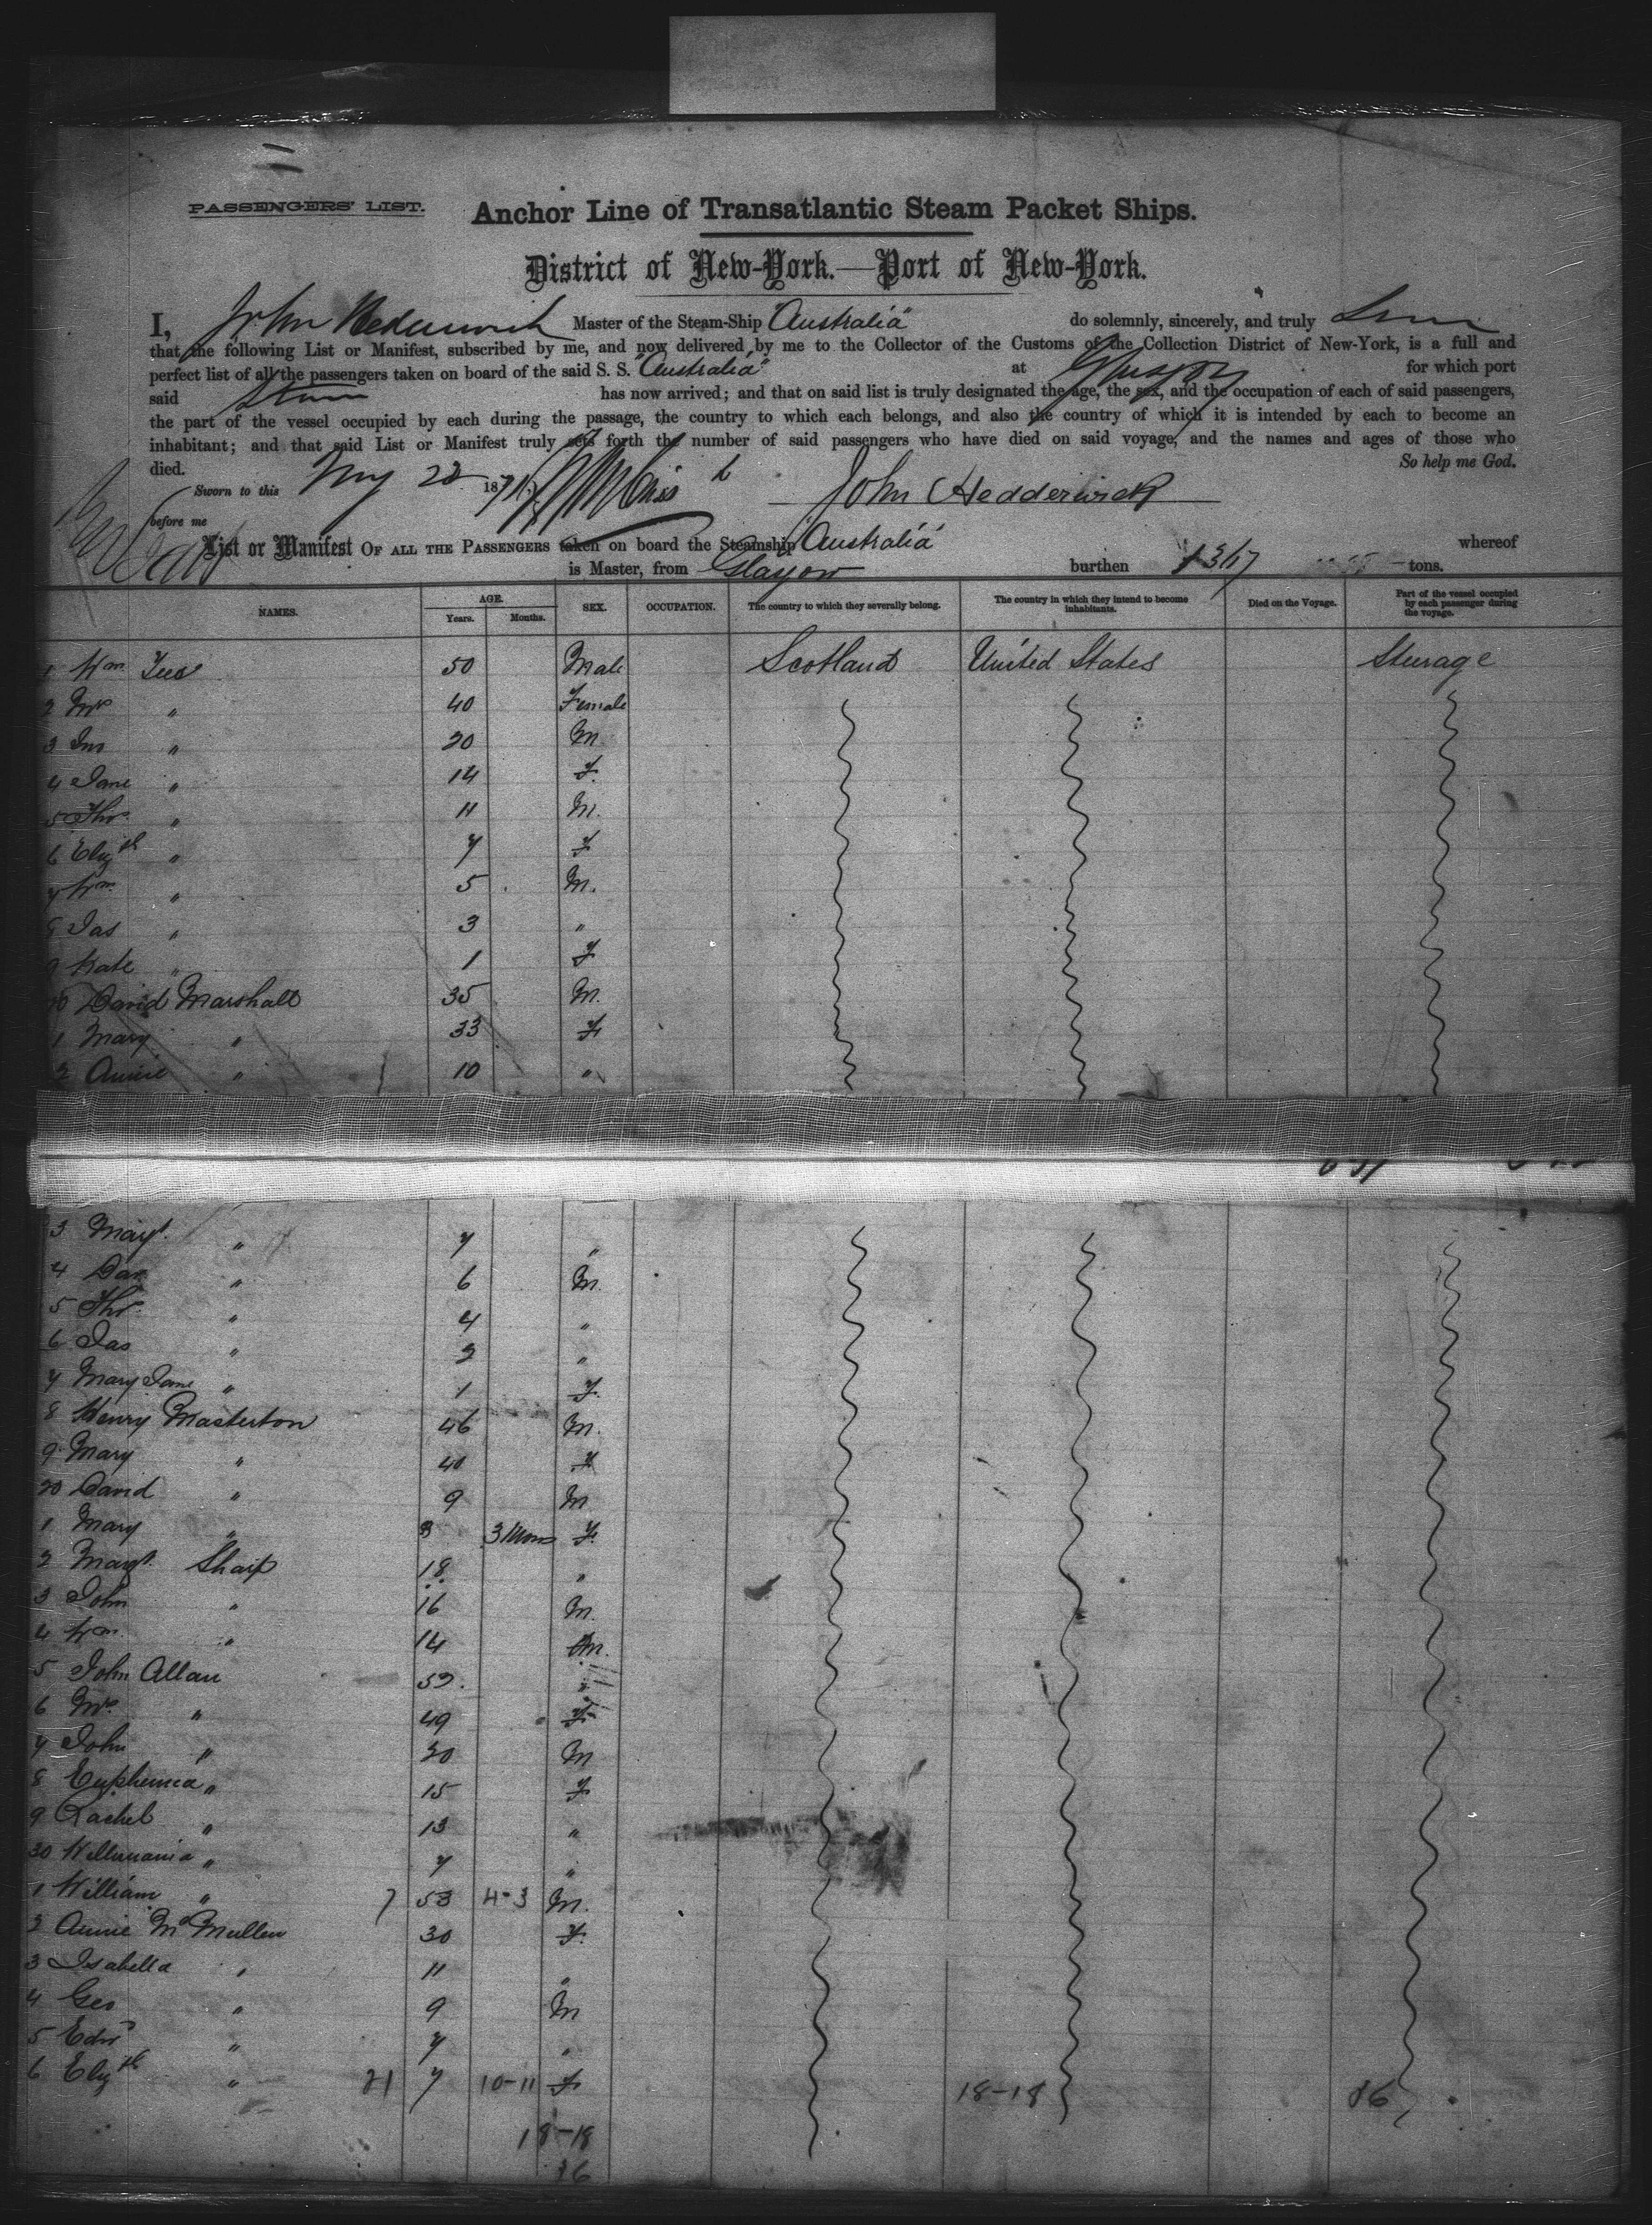 PASSENGERS' LIST.
Anchor Line of Transatlantic Steam Packet Ships.
District of New-York.—Port of New-York.
I, John Hederwick Master of the Steam-Ship "Australia" do solemnly, sincerely, and truly
that the following List or Manifest, subscribed by me, and now delivered by me to the Collector of the Customs of the Collection District of New-York, is a full and
perfect list of all the passengers taken on board of the said S. S. "Australia" at Glasgow for which port
said has now arrived; and that on said list is truly designated the age, the sex, and the occupation of each of said passengers,
the part of the vessel occupied by each during the passage, the country to which each belongs, and also the country of which it is intended by each to become an
inhabitant; and that said List or Manifest truly sets forth the number of said passengers who have died on said voyage, and the names and ages of those who
died. So help me God.
Sworn to this 187 John Hedderwick
before me
List or Manifest OF ALL THE PASSENGERS taken on board the Steamship "Australia" whereof
is Master, from Glasgow burthen 1367 tons.
NAMES. AGE. Years. Months. SEX. OCCUPATION. The country to which they severally belong. The country in which they intend to become inhabitants. Died on the Voyage. Part of the vessel occupied by each passenger during the voyage.
1 Wm 50 Male Scotland United States Steerage
2 Mrs " 40 Female
3 Jno " 20 M
4 Jane " 14 F.
5 Thos. " 11 M.
6 Elizth " 7 F
7 Wm. " 5 M.
8 Jas " 3 "
9 Kate " 1 F
10 David Marshall 35 M.
1 Mary " 33 F
2 Annie " 10 "
3 Margt. " 7 "
4 Dav. " 6 M.
5 Thos. " 4 "
6 Jas " 2 "
7 Mary Jane " 1 F.
8 Henry Masterton 46 M.
9 Mary " 40 F
20 David " 9 M
1 Mary " 3 3 Mons F.
2 Margt. Sharp 18 "
3 John " 16 M.
4 Wm. " 14 M.
5 John Allan 52. "
6 Mrs. " 49 F
7 John " 20 M
8 Euphemia " 15 F
9 Rachel " 13 "
30 Willimania " 7 "
1 William " 7 53 4-3 M.
2 Annie McMullen 30 F.
3 Isabella " 11 "
4 Geo " 9 M
5 Edwd " 7 "
6 Elizth " 21 7 10-11 F 18-18 36
18-18
36